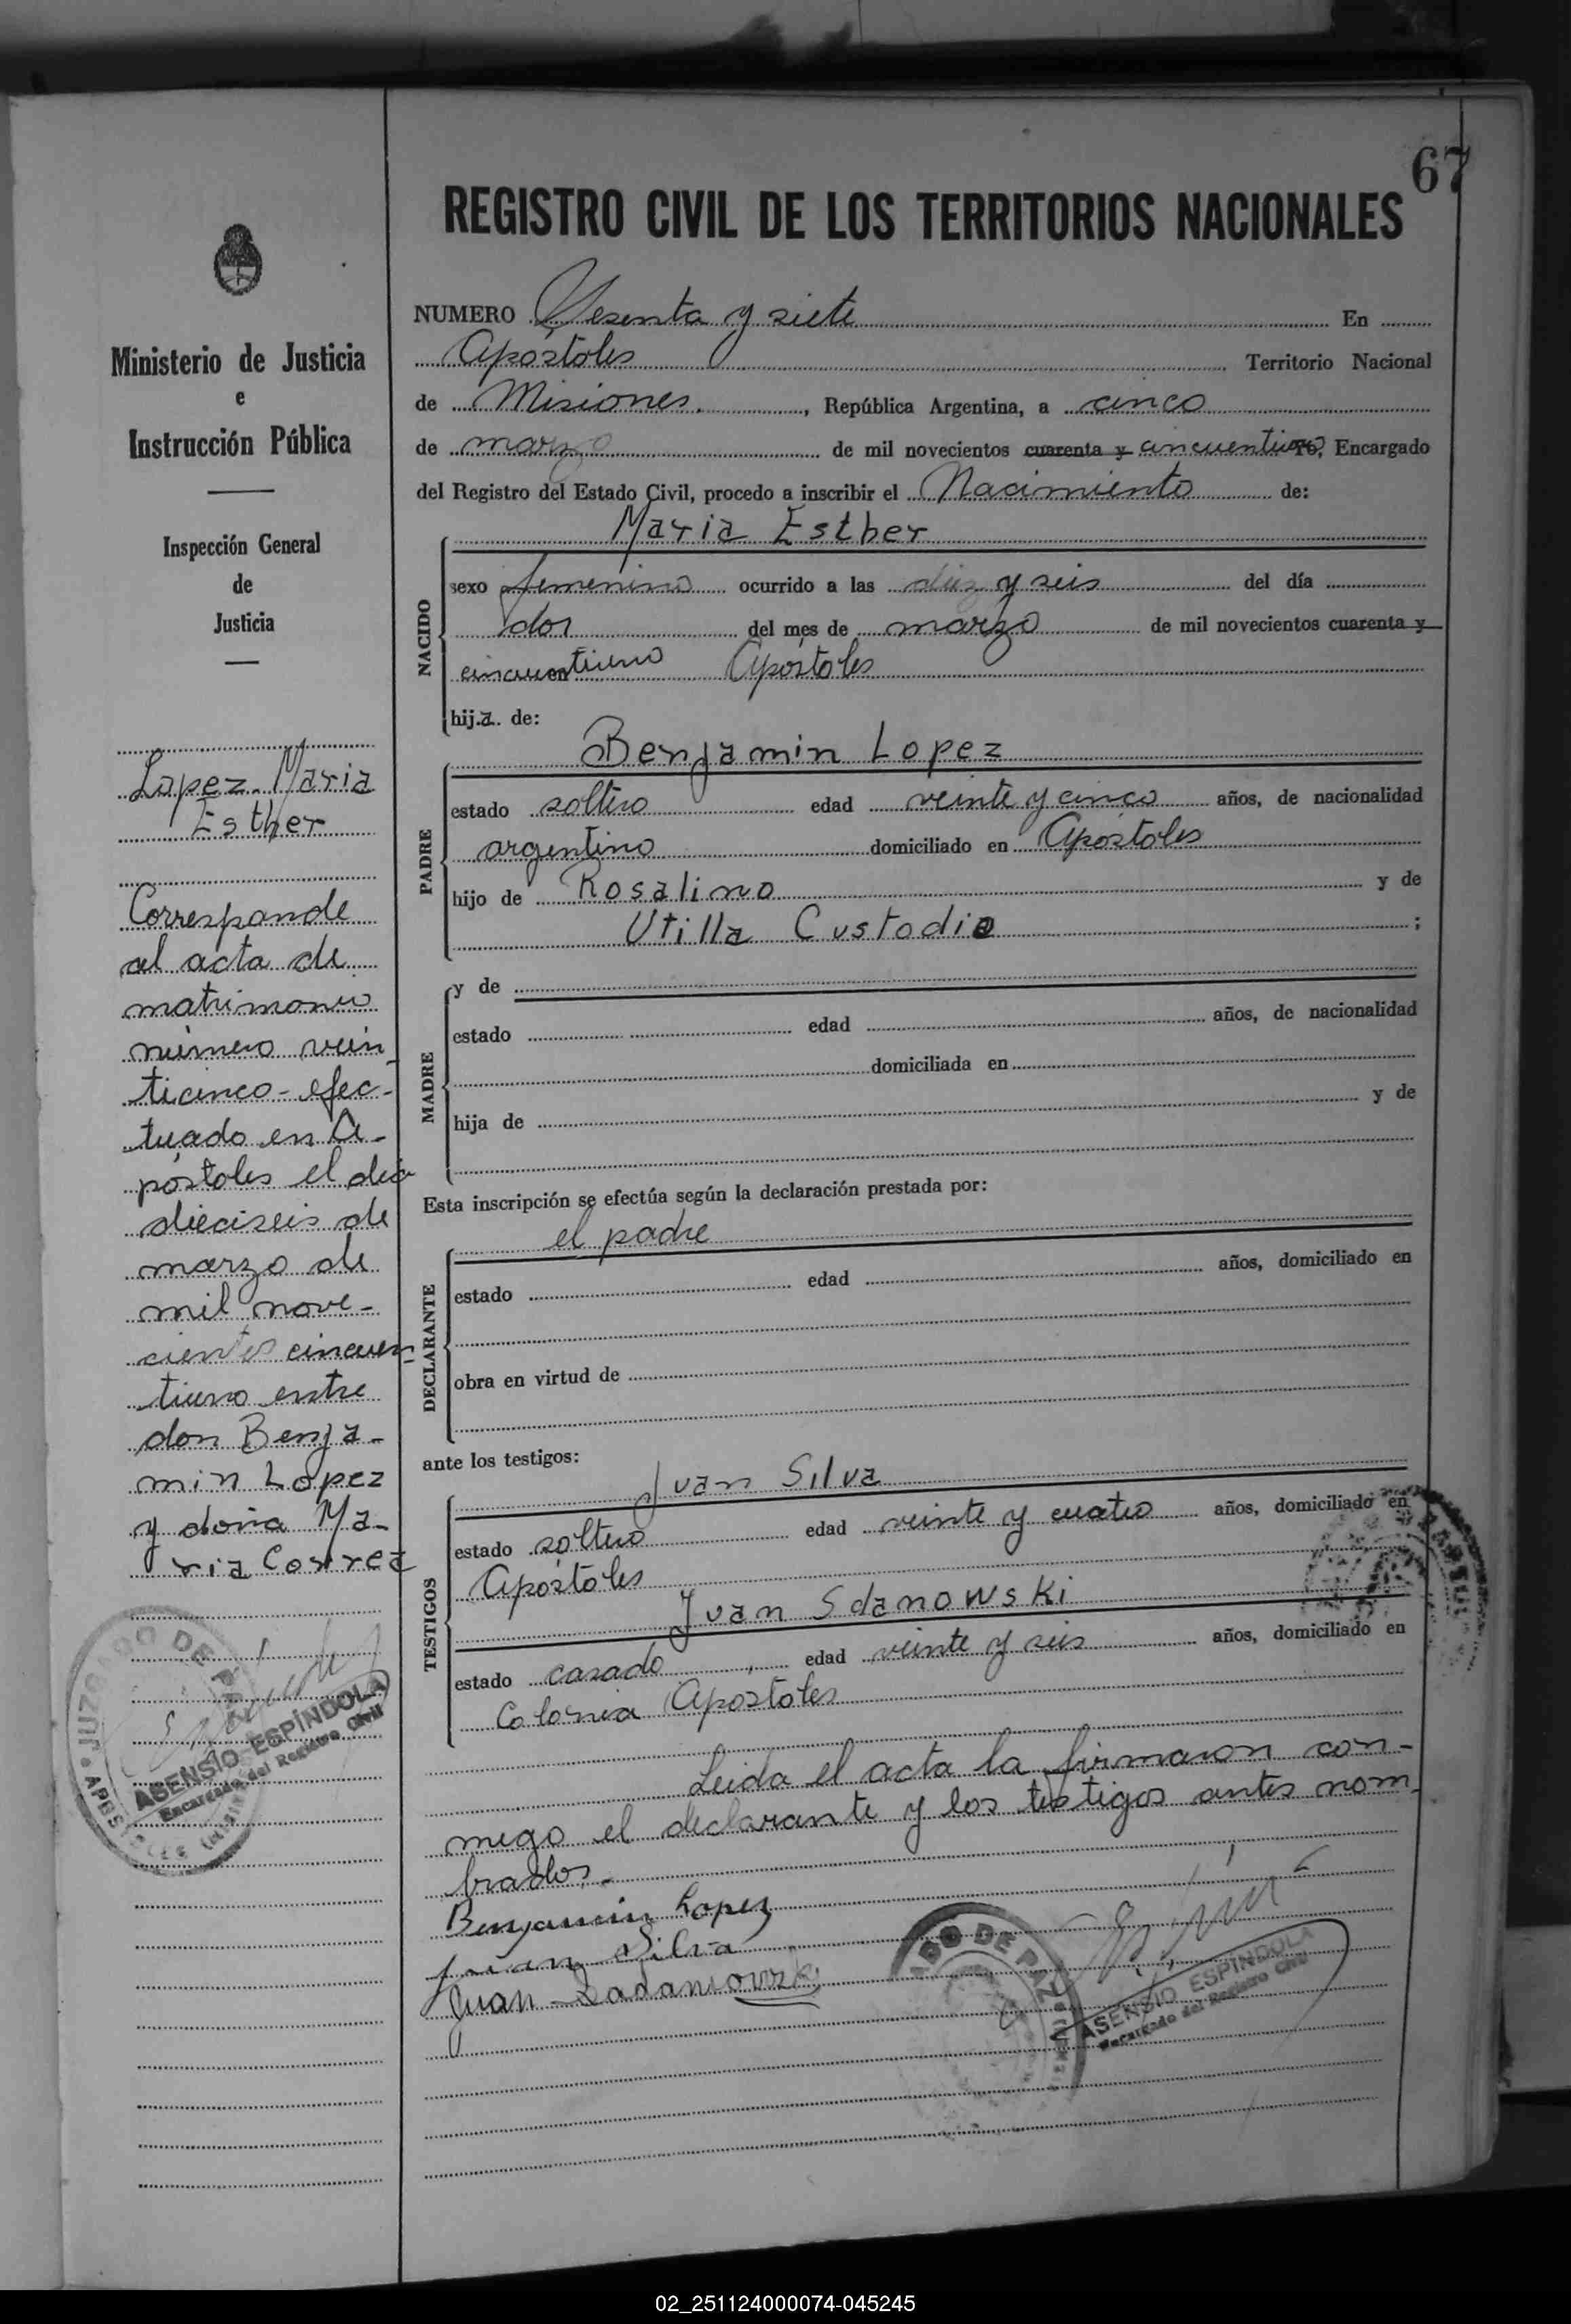 67
REGISTRO CIVIL DE LOS TERRITORIOS NACIONALES
NUMERO Sesenta y siete En
Apóstoles Territorio Nacional
de Misiones. , República Argentina, a cinco
de marzo de mil novecientos cuarenta y cincuentiuno, Encargado
del Registro del Estado Civil, procedo a inscribir el Nacimiento de:
NACIDO
Maria Esther
sexo femenino ocurrido a las diez y seis del día
dos del mes de marzo de mil novecientos cuarenta y
cincuentiuno Apóstoles
hija de:
PADRE
Benjamin Lopez
estado soltero edad veinte y cinco años, de nacionalidad
argentino domiciliado en Apóstoles
hijo de Rosalino y de
Utilla Custodio ;
MADRE
y de
estado edad años, de nacionalidad
domiciliada en
hija de y de
Esta inscripción se efectúa según la declaración prestada por:
DECLARANTE
el padre
estado edad años, domiciliado en
obra en virtud de
ante los testigos:
TESTIGOS
Juan Silva
estado soltero edad veinte y cuatro años, domiciliado en
Apóstoles
Juan Sdanowski
estado casado edad veinte y seis años, domiciliado en
Colonia Apóstoles
Leida el acta la firmaron con-
migo el declarante y los testigos antes nom-
brados.-
Benjamin Lopez
Juan Silva
Juan
ADO DE PAZ
ASENSIO ESPINDOLA
Encargado del Registro Civil
Ministerio de Justicia
e
Instrucción Pública
Inspección General
de
Justicia
Lopez Maria
Esther
Corresponde
al acta de
matrimonio
número vein-
ticinco - efec-
tuado en A-
póstoles el dia
dieciseis de
marzo de
mil nove-
cientos cincuen-
tiuno entre
don Benja-
min Lopez
y doña Ma-
ria Correa
JUZGADO DE PAZ
APOSTOLES
ASENSIO ESPÍNDOLA
Encargado del Registro Civil
02_251124000074-045245